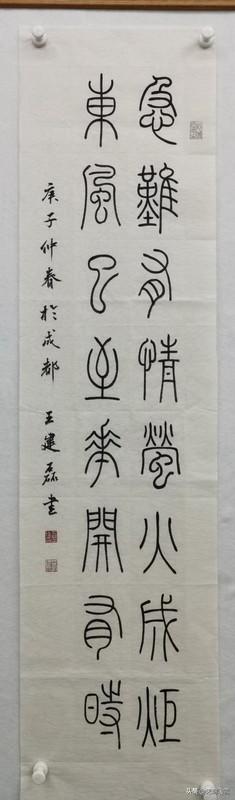 急難有情螢火成炬
東風已至華開有時
庚子仲春於成都 王建磊書